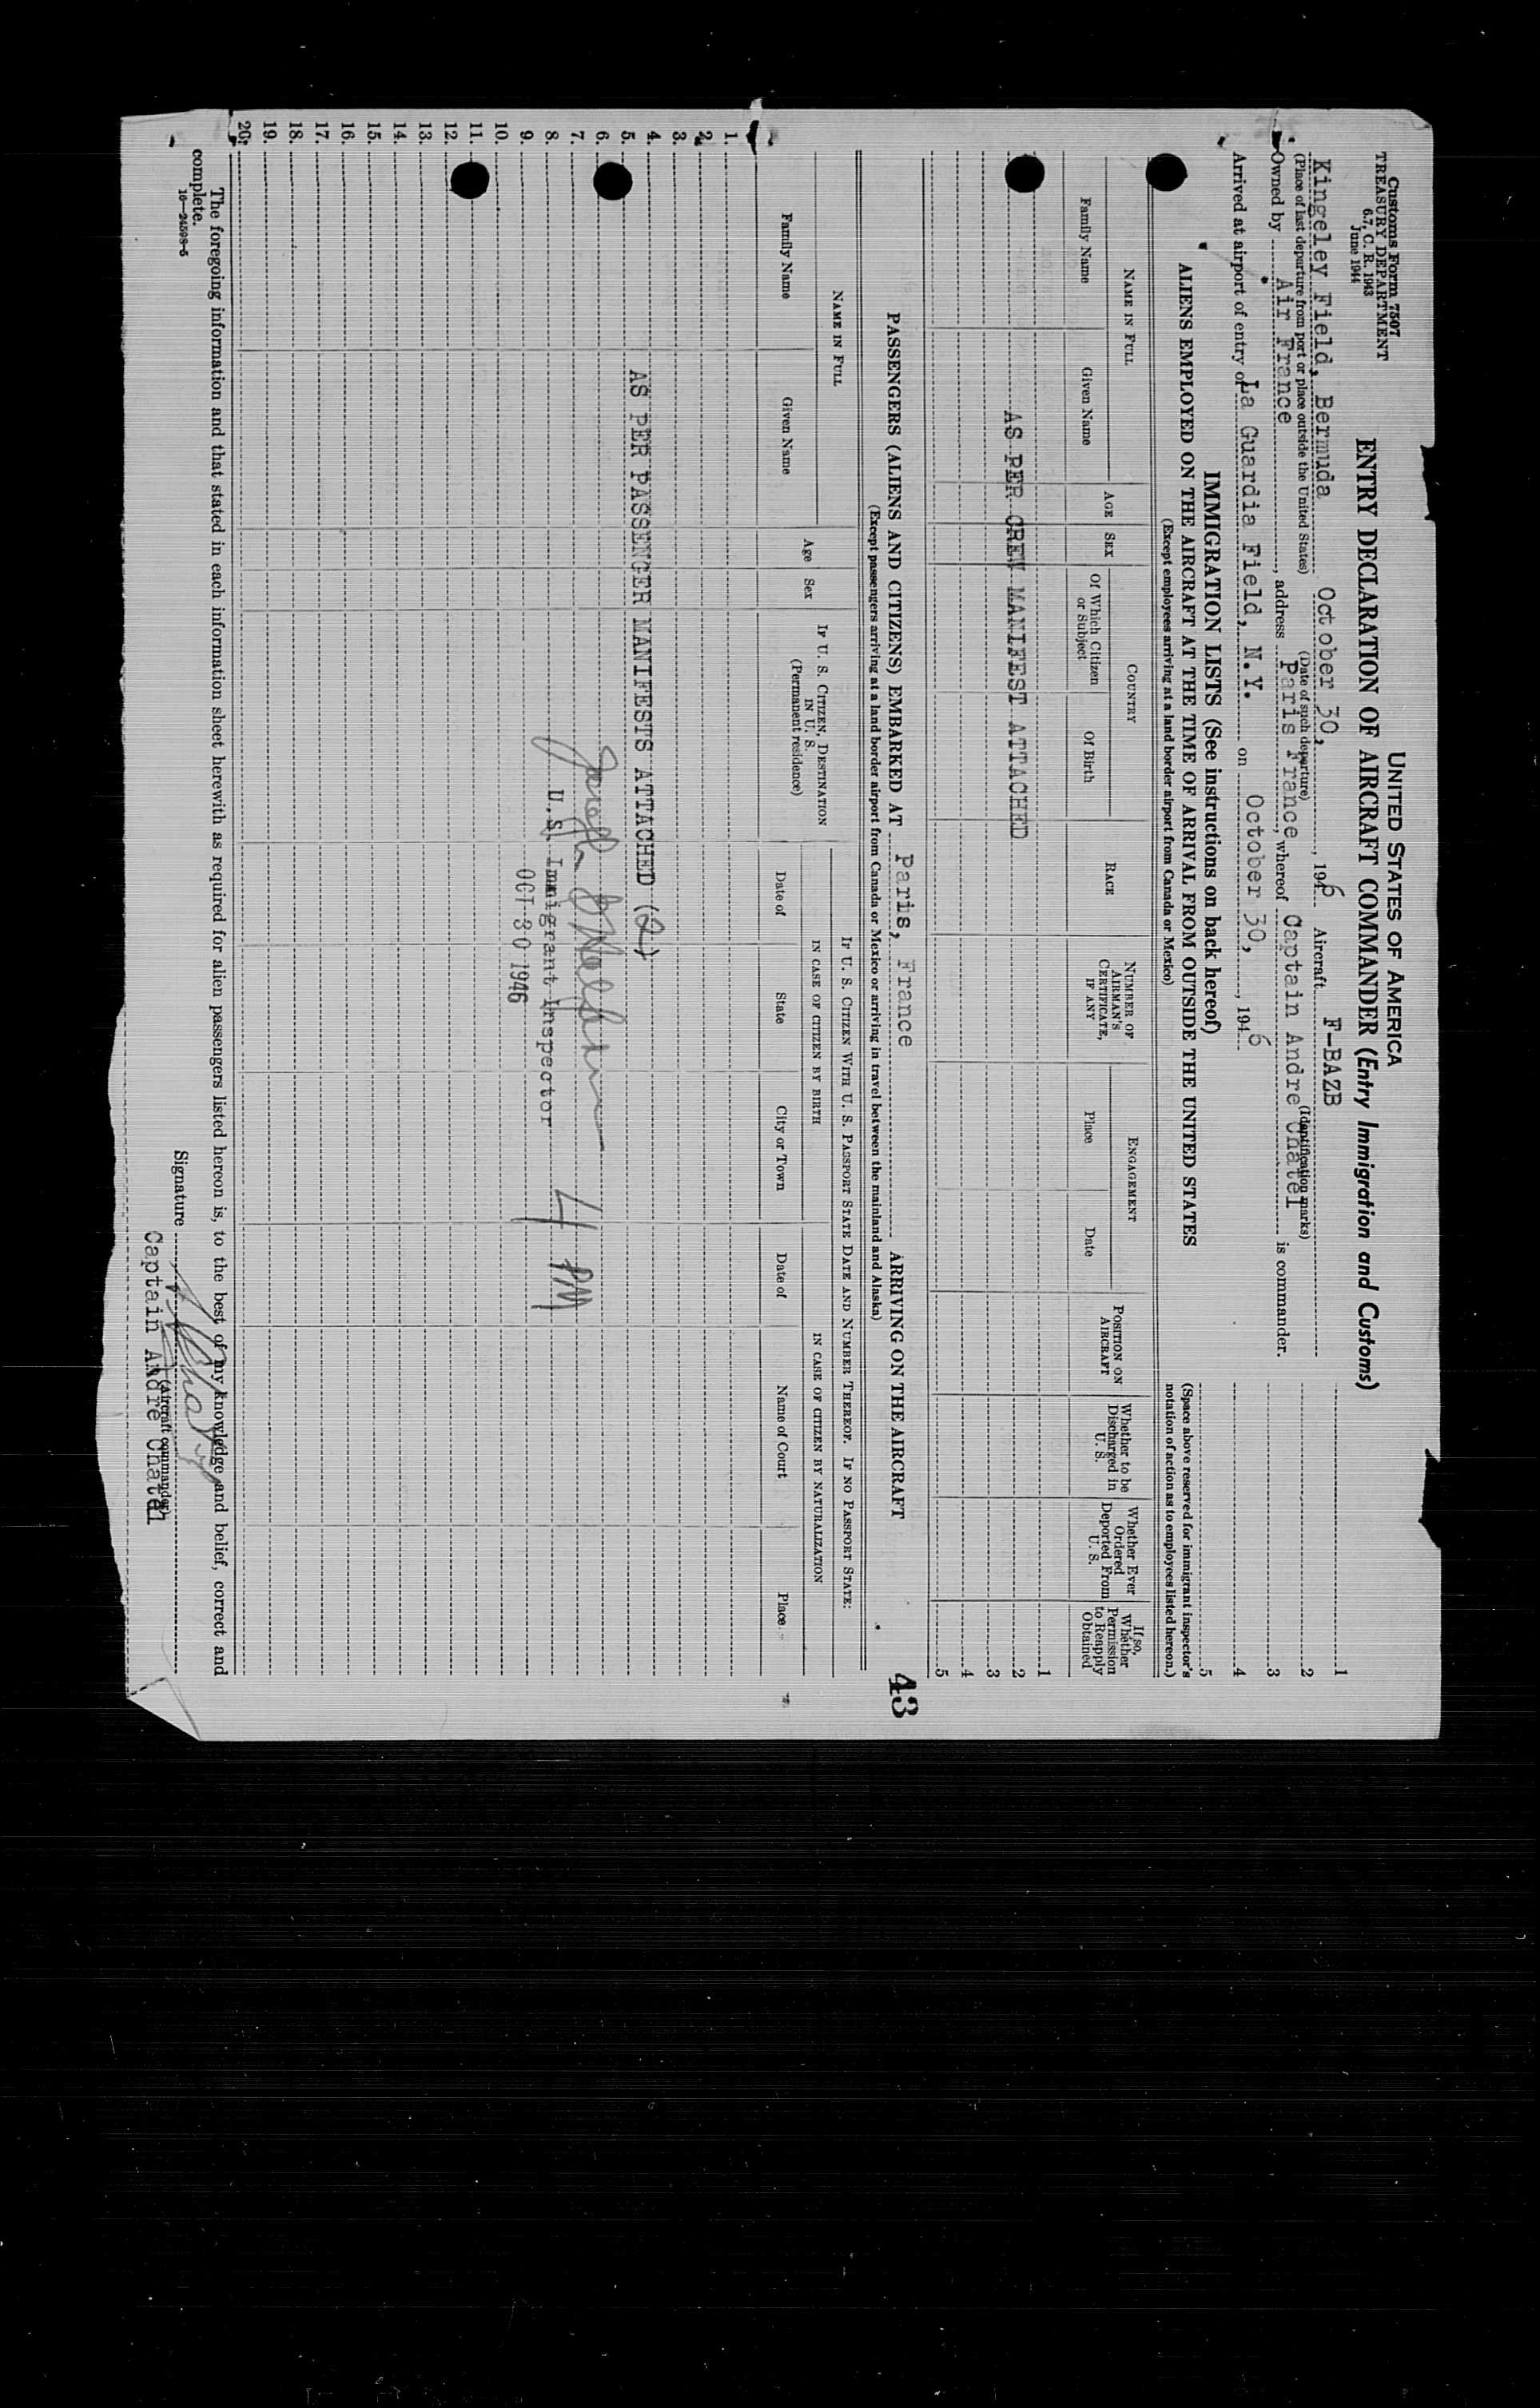 Customs Form 7507
TREASURY DEPARTMENT
6.7, C. R. 1943
June 1944
UNITED STATES OF AMERICA
ENTRY DECLARATION OF AIRCRAFT COMMANDER (Entry Immigration and Customs)
Kingeley Field, Bermuda October 30, , 1946 Aircraft F-BAZB
(Place of last departure from port or place outside the United States) (Date of such departure) (Identification marks)
Owned by Air France , address Paris France , whereof Captain Andre Chatel is commander.
Arrived at airport of entry of La Guardia Field, N.Y. on October 30, , 1946
1
2
3
4
5
IMMIGRATION LISTS (See instructions on back hereof)
(Space above reserved for immigrant inspector's notation of action as to employees listed hereon.)
ALIENS EMPLOYED ON THE AIRCRAFT AT THE TIME OF ARRIVAL FROM OUTSIDE THE UNITED STATES
(Except employees arriving at a land border airport from Canada or Mexico)
NAME IN FULL
Family Name
Given Name
AGE
SEX
COUNTRY
Of Which Citizen or Subject
Of Birth
RACE
NUMBER OF AIRMAN'S CERTIFICATE, IF ANY
ENGAGEMENT
Place
Date
POSITION ON AIRCRAFT
Whether to be Discharged in U. S.
Whether Ever Ordered Deported From U. S.
If so, Whether Permission to Reapply Obtained
1
AS PER CREW MANIFEST ATTACHED 2
3
4
5
PASSENGERS (ALIENS AND CITIZENS) EMBARKED AT Paris, France ARRIVING ON THE AIRCRAFT 43
(Except passengers arriving at a land border airport from Canada or Mexico or arriving in travel between the mainland and Alaska)
NAME IN FULL
Family Name
Given Name
Age
Sex
IF U. S. CITIZEN, DESTINATION IN U. S. (Permanent residence)
IF U. S. CITIZEN WITH U. S. PASSPORT STATE DATE AND NUMBER THEREOF. IF NO PASSPORT STATE:
IN CASE OF CITIZEN BY BIRTH
IN CASE OF CITIZEN BY NATURALIZATION
Date of
State
City or Town
Date of
Name of Court
Place
1.
2.
3.
4.
5. AS PER PASSENGER MANIFESTS ATTACHED (2)
6.
7.
8. U.S. Immigrant Inspector 4 PM
9. OCT 30 1946
10.
11.
12.
13.
14.
15.
16.
17.
18.
19.
20.
The foregoing information and that stated in each information sheet herewith as required for alien passengers listed hereon is, to the best of my knowledge and belief, correct and
complete.
16—24598-5
Signature
(Aircraft commander)
Captain Andre Chatel